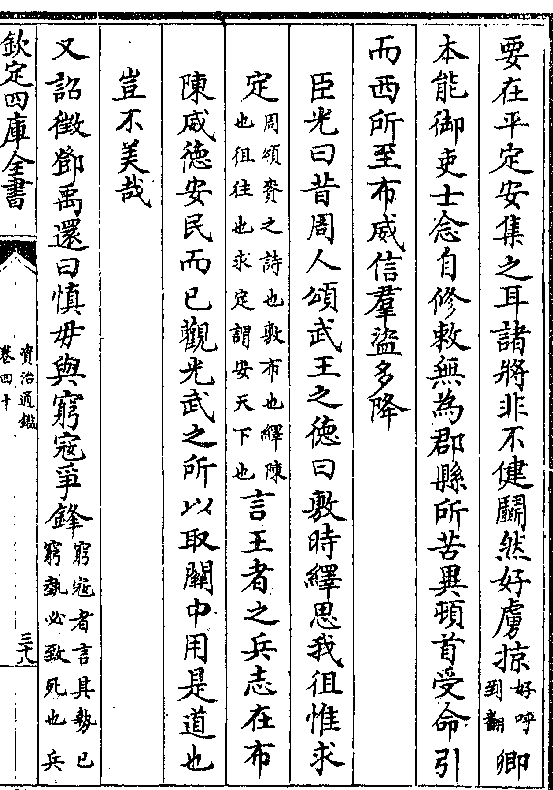 要在平定安集之耳諸將非不健鬭然好虜掠好呼到翻卿
本能御吏士念自修敕無為郡縣所苦異頓首受命引
而西所至布威信羣盜多降
臣光曰昔周人頌武王之德曰敷時繹思我徂惟求
定周頌賚之詩也敷布也繹陳也徂往也求定謂安天下也言王者之兵志在布
陳威德安民而已觀光武之所以取關中用是道也
豈不美哉
又詔徵鄧禹還曰慎毋與窮寇爭鋒窮寇者言其勢已窮埶必致死也兵
欽定四庫全書
資治通鑑
卷四十
三十八